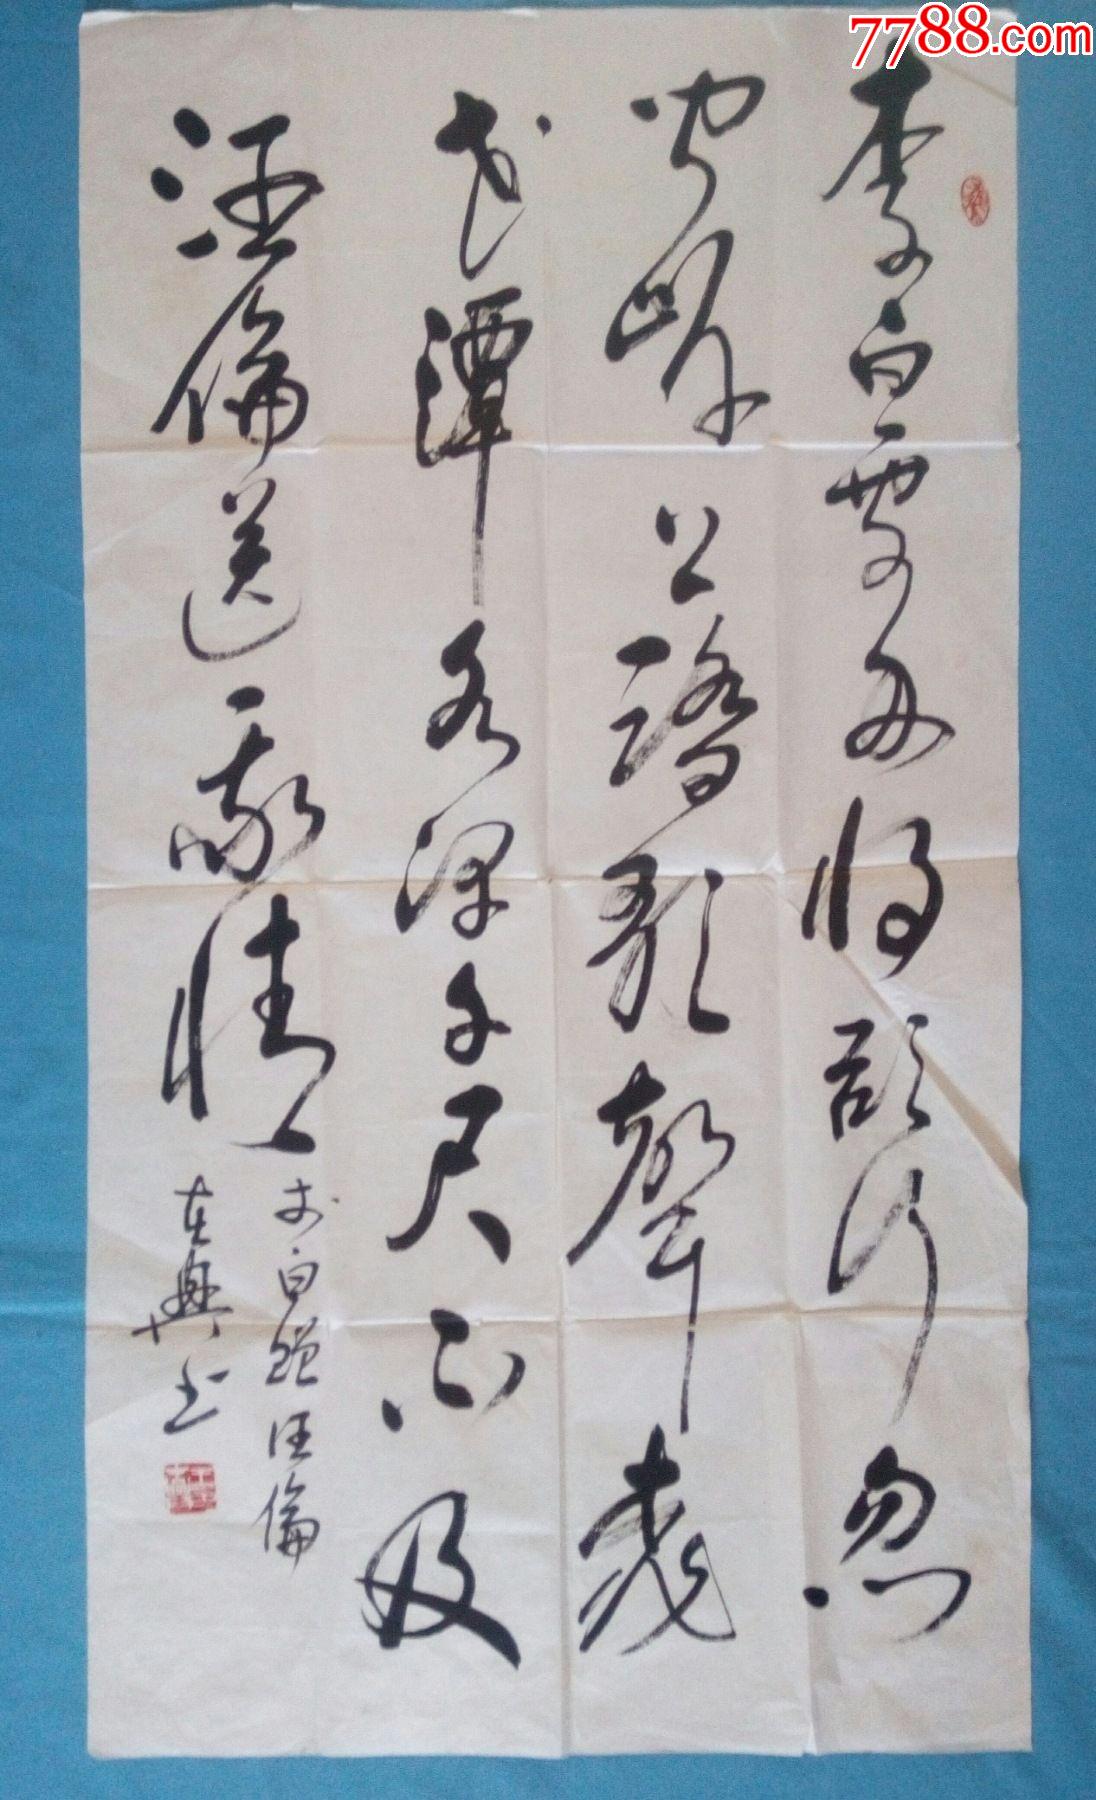 7788.com
李白乘舟将欲行忽
闻岸上踏歌聲桃
花潭水深千尺不及
汪倫送我情
李白贈汪倫
興书